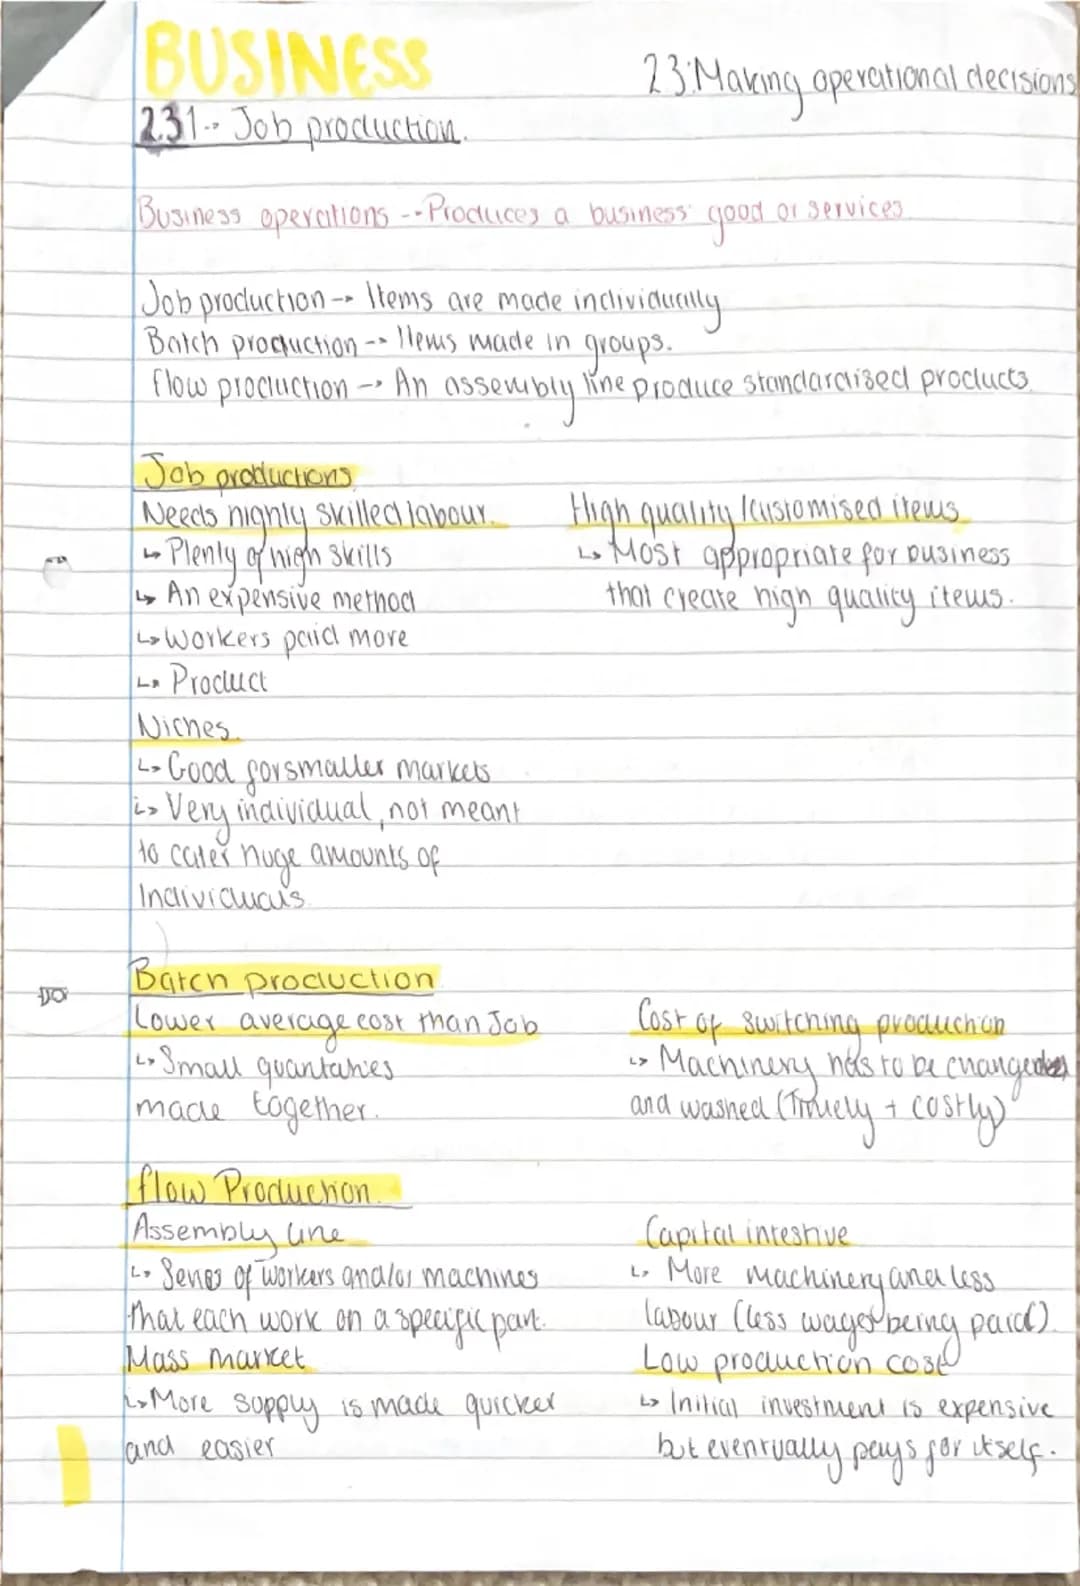 BUSINESS
2.3: Making operational decisions
2.3.1 -> Job production.
Business operations --Produces a business' good or services
Job production --> Items are made individually
Batch production --> Items made in groups.
flow production --> An assembly line produce standardised products
Job productions
Needs highly skilled labour.
↳ Plenty of high skills
↳ An expensive method
↳ Workers paid more
↳ Product
Niches.
↳ Good for smaller markets
↳ Very individual, not meant
to cater huge amounts of
Individuals
High quality / customised items
↳ Most appropriate for business
that create high quality items.
Batch production
Lower average cost than Job
↳ Small quantanies
made together.
Cost of switching production
↳ Machinery has to be changed
and washed (Timely + costly)
flow Production.
Assembly line
↳ Series of workers and/or machines
that each work on a specific part.
Mass market
↳ More supply is made quicker
and easier
Capital intestive
↳ More machinery and less
labour (less wages being paid)
Low production cost
↳ Initial investment is expensive
but eventually pays for itself.